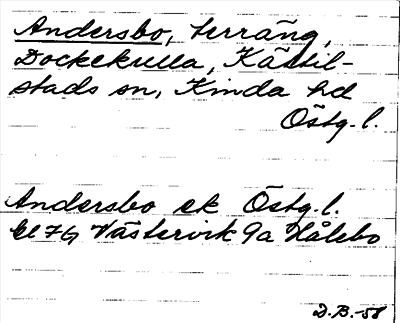 Andersbo, terräng,
Dockekulla, Kättil-
stads sn, Kinda hd
Östg. l.
Andersbo ek Östg. l.
bl 7G Västervik 9a Hålebo
D.B. -58